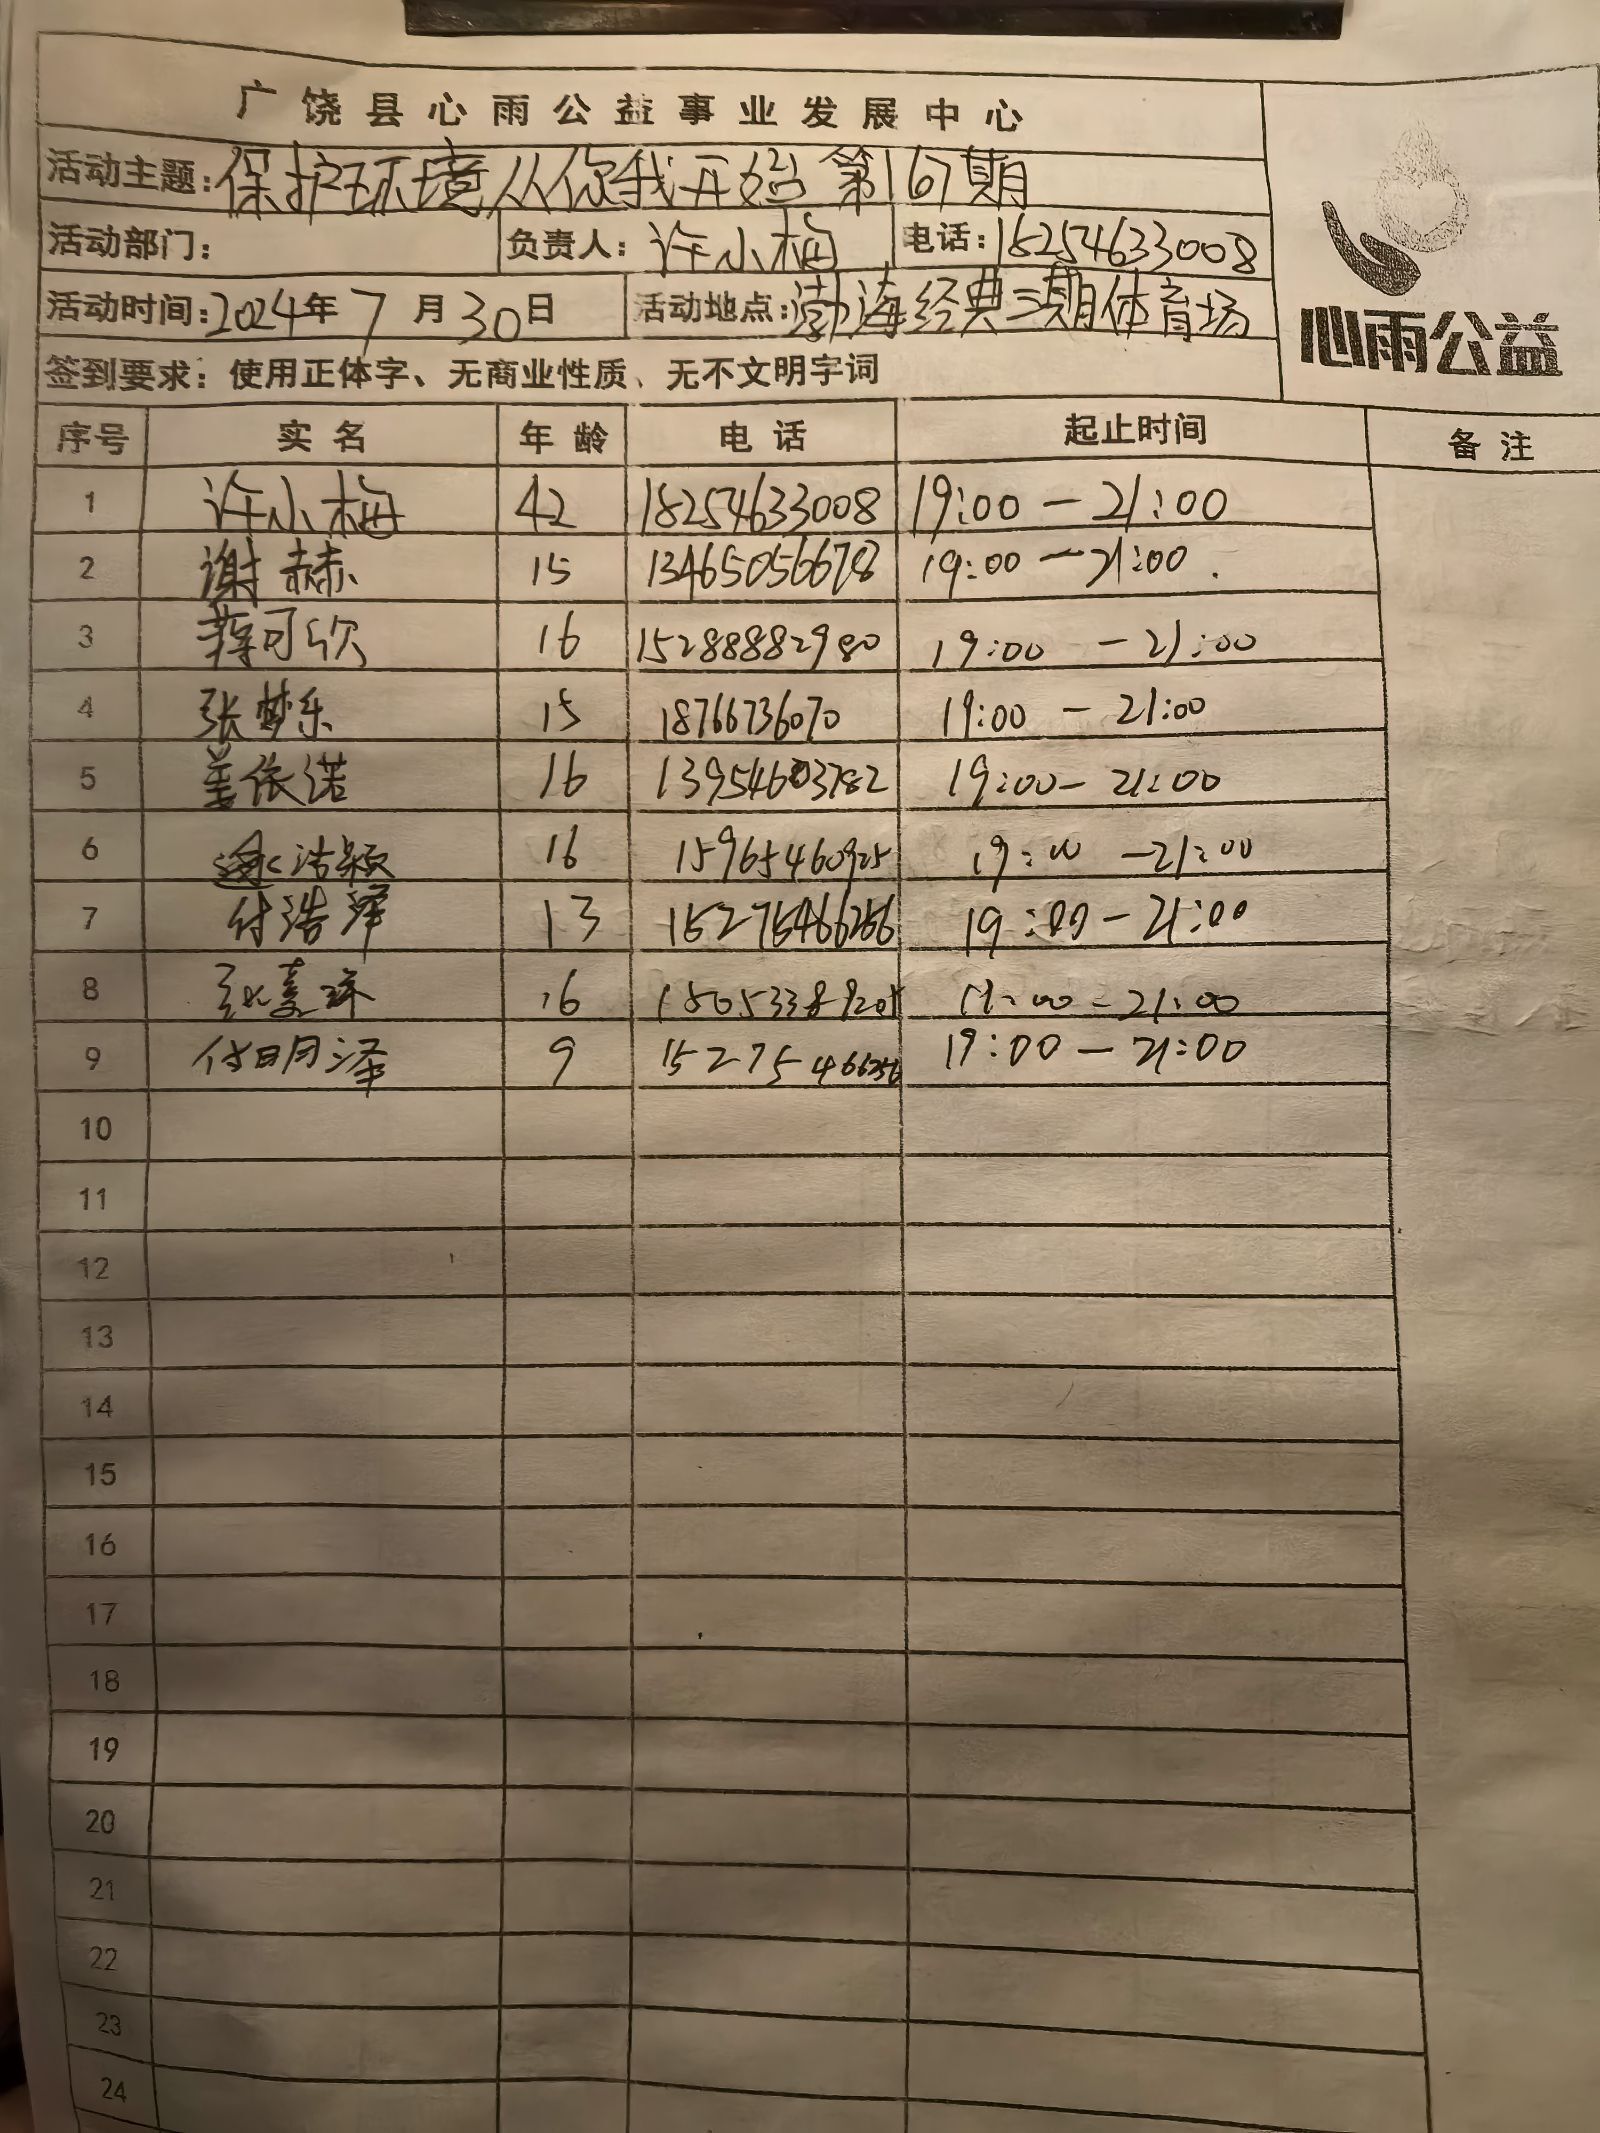 广饶县心雨公益事业发展中心
活动主题：保护环境从你我开始 第167期
活动部门： 负责人：许小梅 电话：18254633008
活动时间：2024年7月30日 活动地点：渤海经典三期体育场
心雨公益
签到要求：使用正体字、无商业性质、无不文明字词
序号 实名 年龄 电话 起止时间 备注
1 许小梅 42 18254633008 19:00－21:00
2 谢赫 15 13465056678 19:00－21:00.
3 蒋可欣 16 15288882980 19:00－21:00
4 张梦乐 15 18766736070 19:00－21:00
5 姜依诺 16 13954603782 19:00－21:00
6 16 15965460925 19:00－21:00
7 付浩泽 13 15275466256 19:00－21:00
8 16 19:00－21:00
9 付明泽 9 15275466256 19:00－21:00
10
11
12
13
14
15
16
17
18
19
20
21
22
23
24